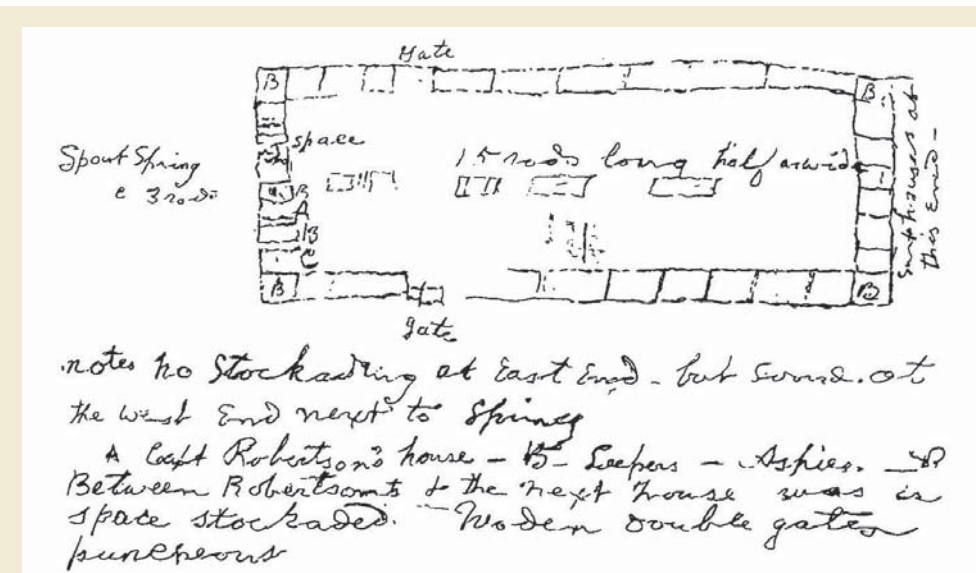 Gate
B
B
space
Spout Spring
3 rods
15 rods long half as wide
B
A
B
C
B
B
at this End -
gate
notes no Stockading at East End - but at
the West End next to Spring
A Capt Robertson's house - B -
Between Robertson's & the next house was a
space stockaded. Woden double gates
puncheons